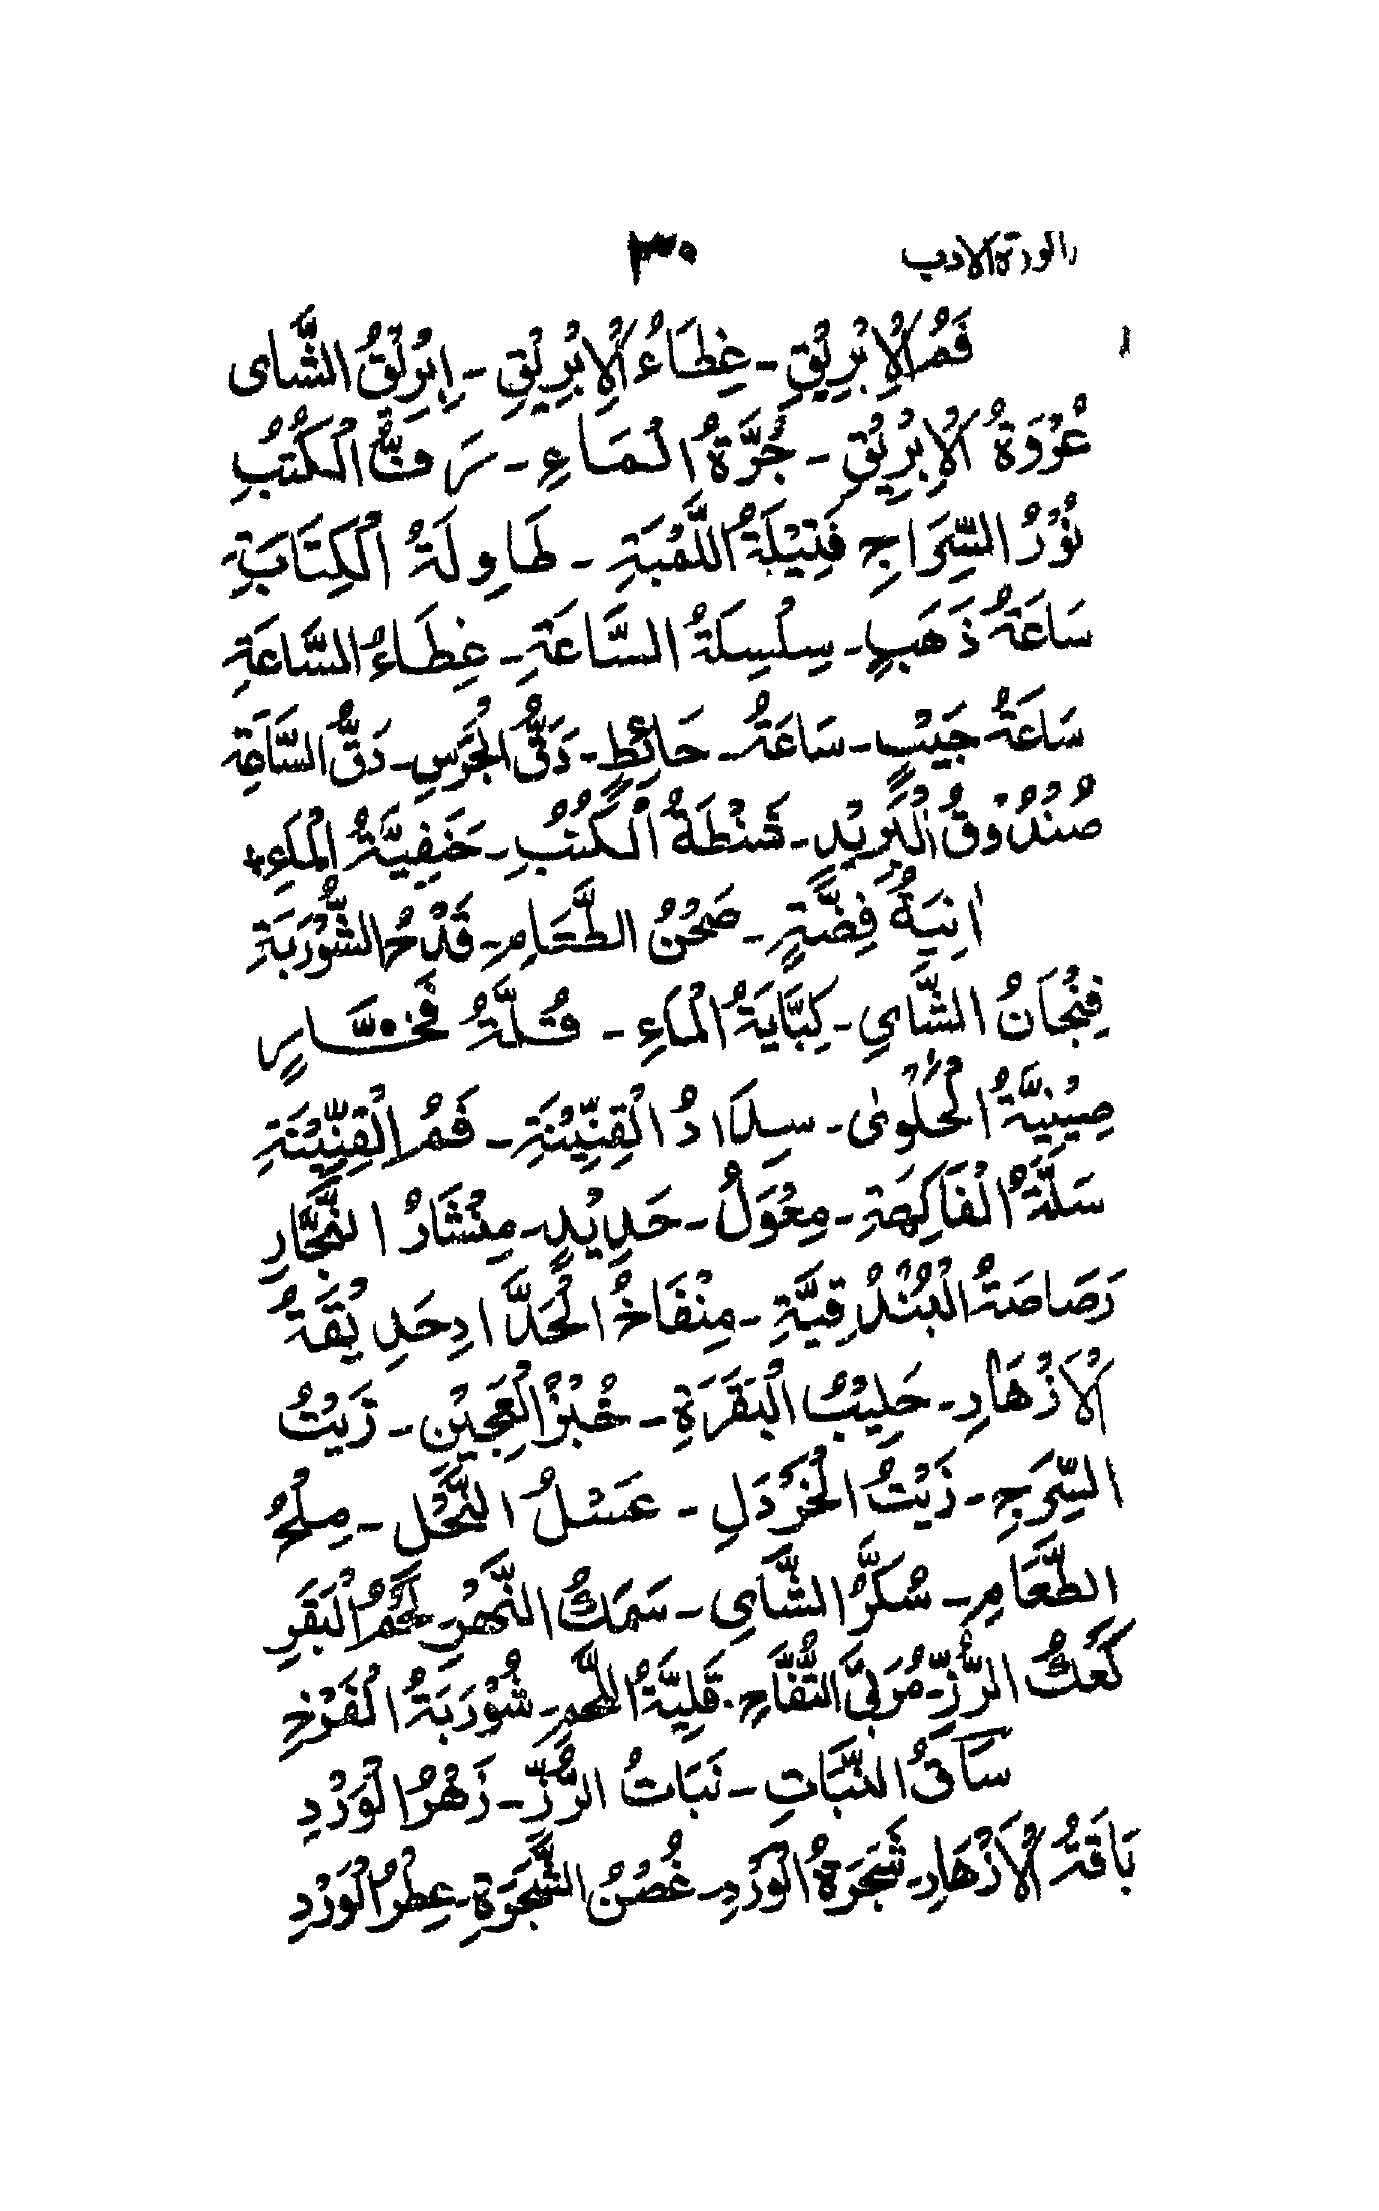 الادب ٣٠
فَمُ الْاِبْرِيْقِ - غِطَاءُ الْاِبْرِيْقِ - اِبْرِيْقُ الشَّاى
عُرْوَةُ الْاِبْرِيْقِ - جُرَّةُ الْمَاءِ - رَفُّ الْكُتُبِ
نُوْرُ السِّرَاجِ فَتِيْلَةُ اللَّمْبَةِ - طَاوِلَةُ الْكِتَابَةِ
سَاعَةُ ذَهَبٍ - سِلْسِلَةُ السَّاعَةِ - غِطَاءُ السَّاعَةِ
سَاعَةُ جَيْبٍ - سَاعَةُ - حَائِطٍ - دَقُّ الْجَرَسِ - دَقُّ السَّاعَةِ
صُنْدُوْقُ الْبَرِيْدِ - شَنْطَةُ الْكُتُبِ - حَنَفِيَّةُ الْمَاءِ
اٰنِيَةُ فِضَّةٍ - صَحْنُ الطَّعَامِ - قَدْحُ الشُّوْرَبَةِ
فِنْجَانُ الشَّايِ - كِبَّايَةُ الْمَاءِ - قُلَّةُ فَخَّارٍ
صِيْنِيَّةُ الْحُلْوٰى - سِدَادُ الْقِنِّيْنَةِ - فَمُ الْقِنِّيْنَةِ
سَلَّةُ الْفَاكِهَةِ - مِعْوَلُ - حَدِيْدٍ - مِنْشَارُ النَّجَّارِ
رَصَاصَةُ الْبُنْدُقِيَّةِ - مِنْفَاخُ الْحَدَّادِ حَدِيْقَةُ
الْاَزْهَارِ - حَلِيْبُ الْبَقَرَةِ - خُبْزُ الْعَجِيْنِ - زَيْتُ
السِّرَجِ - زَيْتُ الْخَرْدَلِ - عَسْلُ النَّحْلِ - مِلْحُ
الطَّعَامِ - سُكَّرُ الشَّايِ - سَمَكُ النَّهْرِ - لَحْمُ الْبَقَرِ
كَعَكُ الرُّزِّ - مُرَبَّى التُّفَّاحِ - قَلِيَّةُ اللَّحْمِ - شُوْرَبَةُ الْفَرْخِ
سَاقُ النَّبَاتِ - نَبَاتُ الرُّزِّ - زَهْرُ الْوَرْدِ
بَاقَةُ الْاَزْهَارِ - شَجَرَةُ الْوَرْدِ - غُصْنُ الشَّجَرَةِ - عِطْرُ الْوَرْدِ